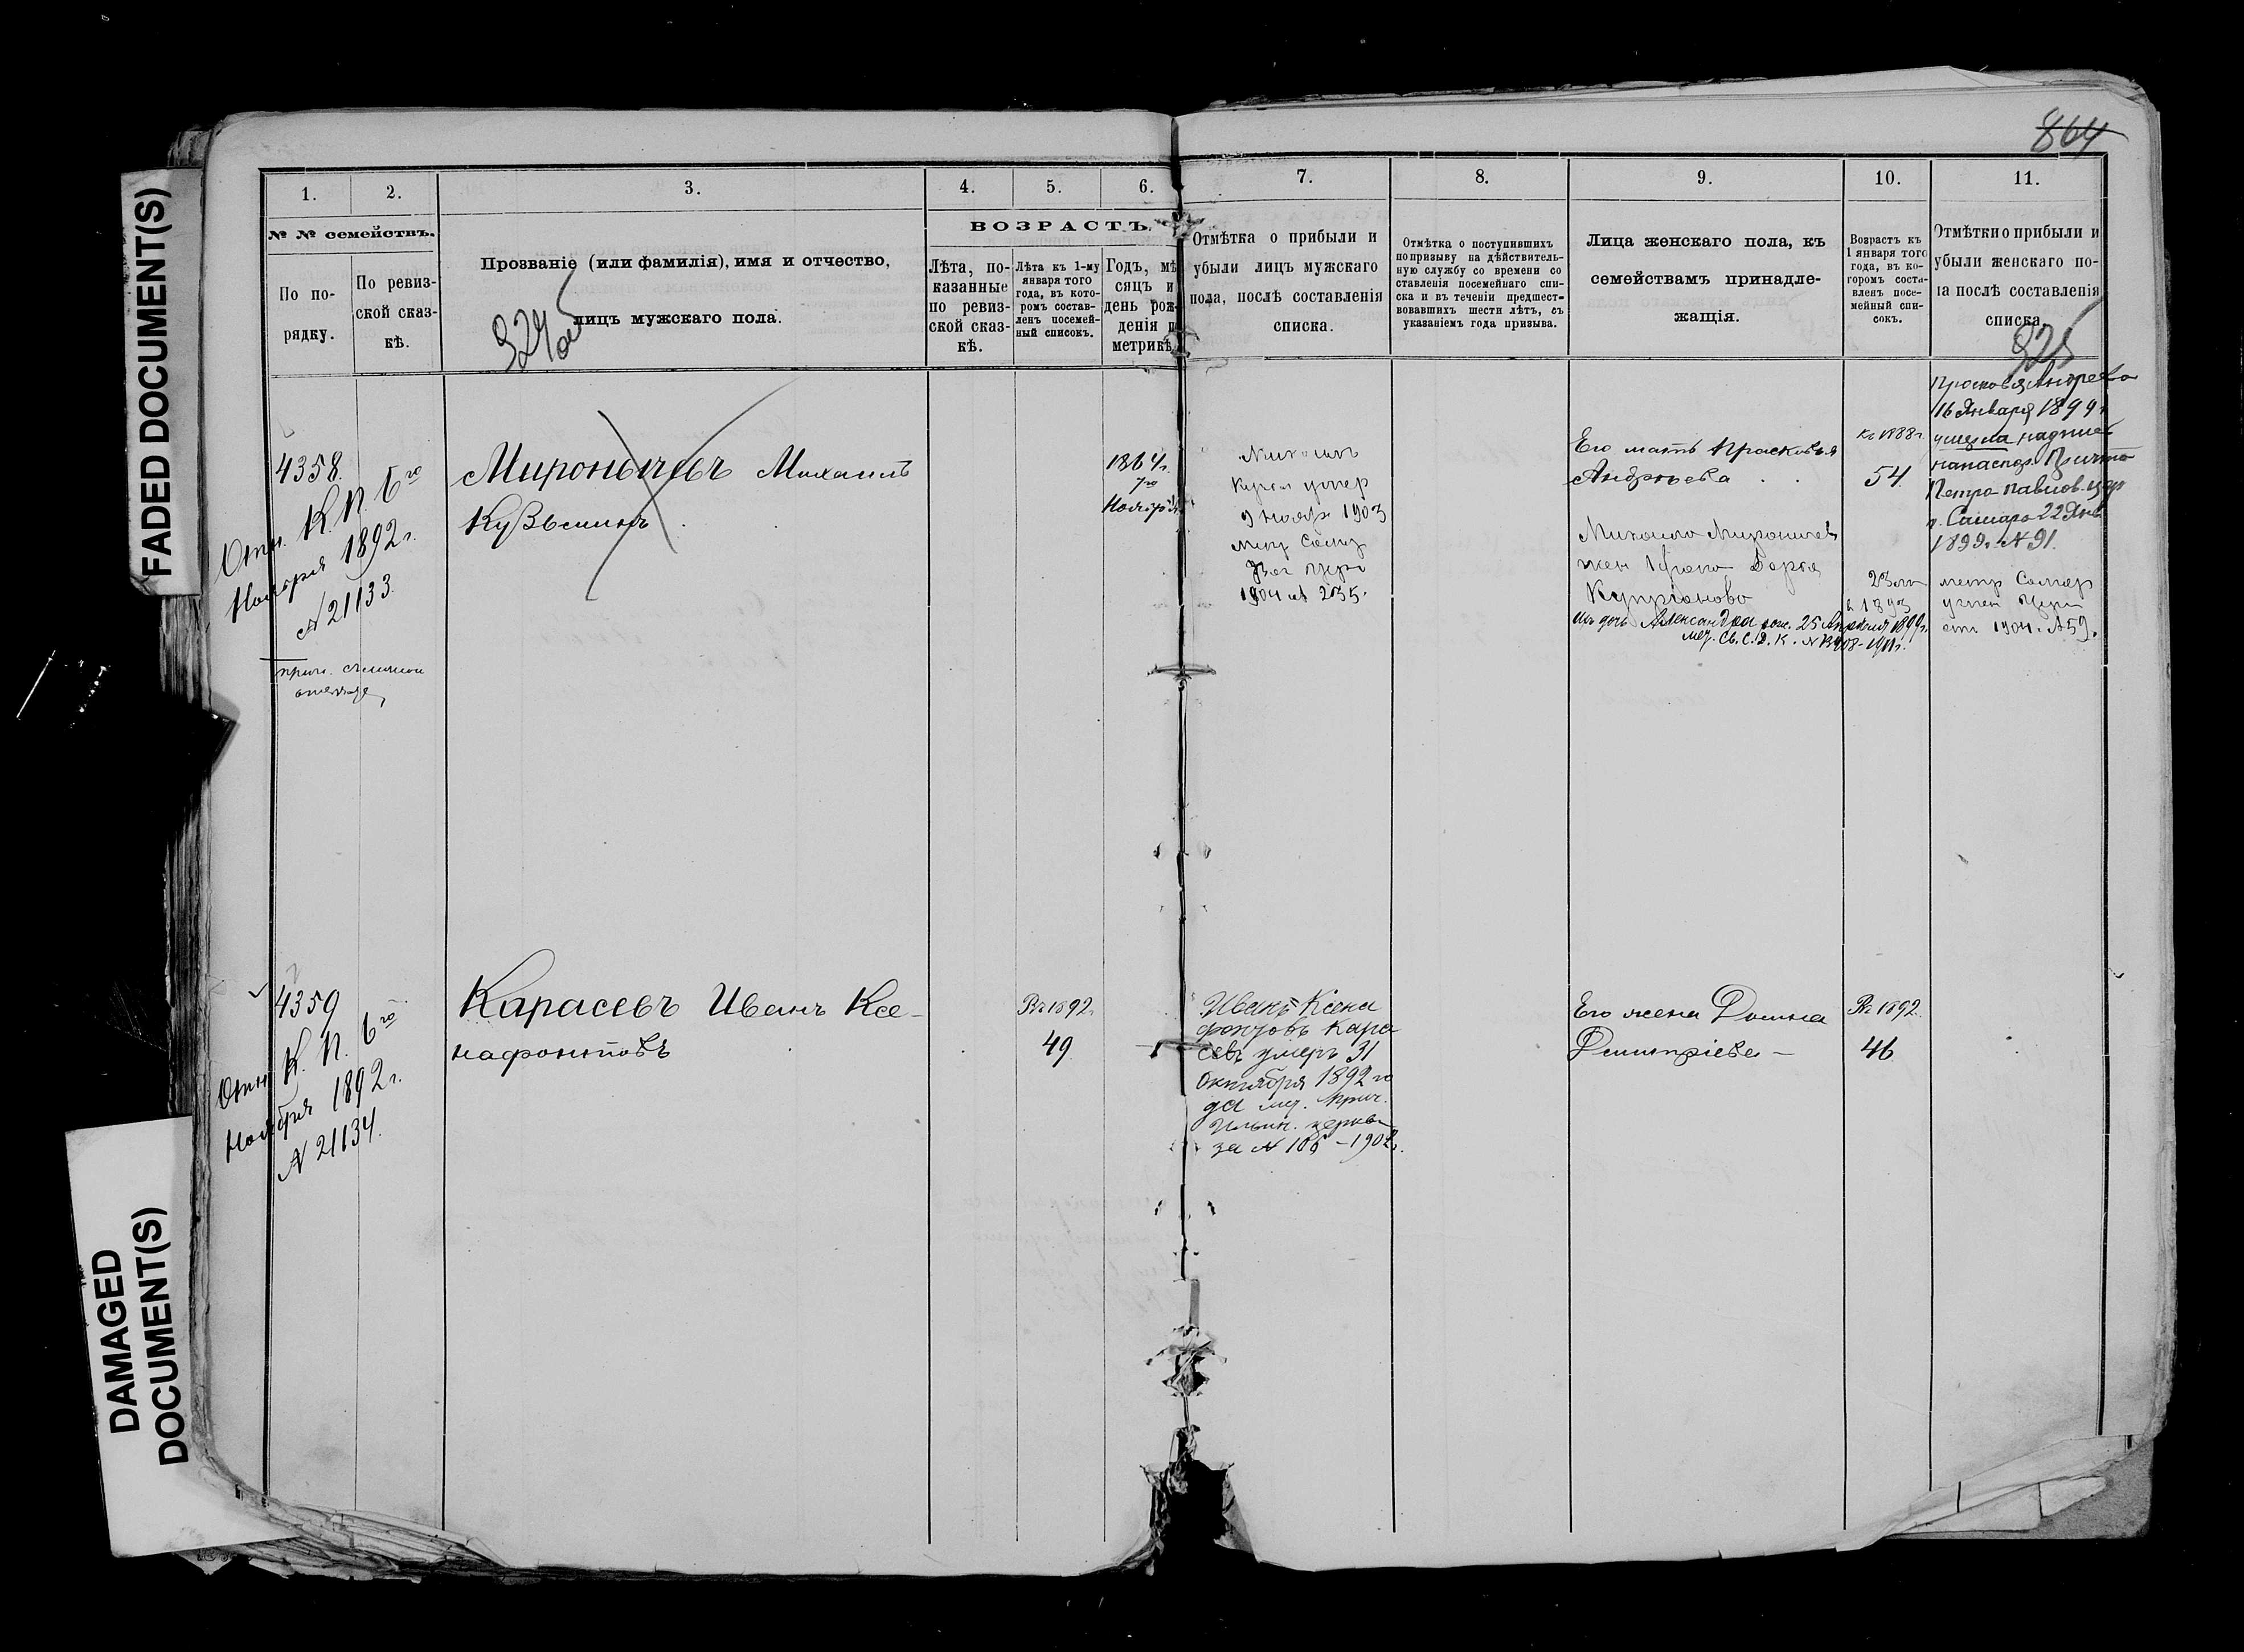 FADED DOCUMENT(S)
DAMAGED
DOCUMENT(S)
864
1.
2.
3.
4.
5.
6.
7.
8.
9.
10.
11.
№ № семействъ.
По по-
рядку.
По ревиз-
ской сказ-
кѣ.
Прозваніе (или фамилія), имя и отчество,
лицъ мужскаго пола.
324 об
ВОЗРАСТЪ.
Лѣта, по-
казанные
по ревиз-
ской сказ-
кѣ.
Лѣта къ 1-му
января того
года, въ кото-
ромъ состав-
ленъ посемей-
ный списокъ.
Годъ, мѣ
сяцъ и
день рож-
денія п
метрикѣ
Отмѣтка о прибыли и
убыли лицъ мужскаго
пола, послѣ составленія
списка.
Отмѣтка о поступившихъ
по призыву на дѣйствитель-
ную службу со времени со
ставленія посемейнаго спи-
ска и въ теченіи предшест-
вовавшихъ шести лѣтъ, съ
указаніемъ года призыва.
Лица женскаго пола, къ
семействамъ принадле-
жащія.
Возрастъ къ
1 января того
года, въ ко-
торомъ соста-
вленъ посе-
мейный спи-
сокъ.
Отмѣтки о прибыли и
убыли женскаго по-
ла послѣ составленія
списка.
325
4358.
Отн. К. П. 6го
Ноября 1892 г.
№ 21133.
Миронычевъ Михаилъ
Кузьминъ
1864 г.
7го
Ноября
Михаилъ
Кузьм умер
9 нояр 1903
1904 № 235.
Его мать Прасковья
Андреева
Къ 1888 г.
54
Михаила Миронычев
жен Дарья
Купріянова
23
1893
Ихъ дочь Александра рож. 25 Апрѣля 1899 г.
С. Д. К. № 13408-1911 г.
Прасковья Андреева
16 Января 1899 г
умерла надпись
на паспор. Причта
Петро-Павлов. цер
г. Самары 22 Янв
1899 г. № 91.
1904. № 59.
4359
Отн. К. П. 6го
Ноября 1892 г.
№ 21134.
Карасевъ Иванъ Ксе-
нафонтовъ
Въ 1892 г.
49.
Иванъ Ксена
фонтовъ Кара
севъ умеръ 31
октября 1892 го
да мет. Прич.
Ильин. церкви
за № 106 - 1902 г.
Его жена Домна
Димитріева -
Въ 1892.
46